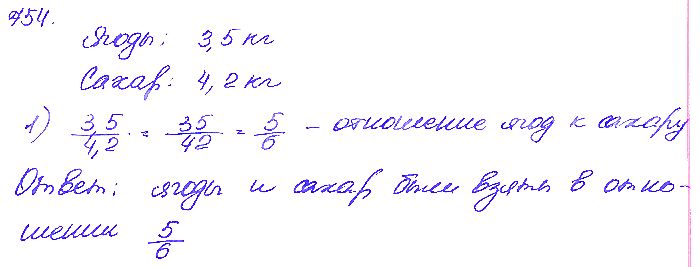 754.
Ягоды: 3,5 кг
Сахар: 4,2 кг
1) 3,5/4,2 = 35/42 = 5/6 - отношение ягод к сахару
Ответ: ягоды и сахар были взяты в отно-
шении 5/6